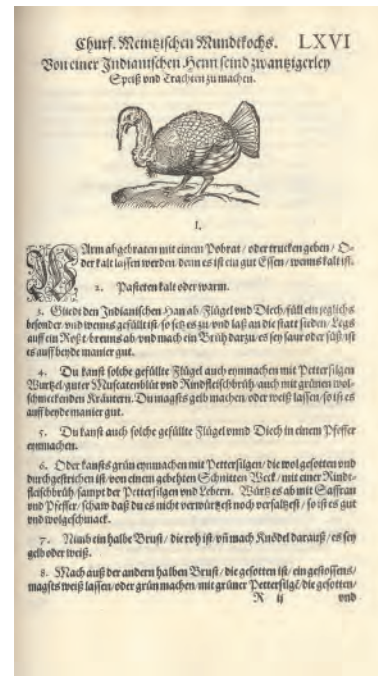 Churf. Meintzischen Mundtkochs. LXVI
Von einer Indianischen Henn seind zwantzigerley
Speiß vnd Trachten zu machen.
I.
WArm abgebraten mit einem Pobrat / oder trucken geben / O-
der kalt lassen werden / denn es ist ein gut Essen / wenns kalt ist.
2. Pasteten kalt oder warm.
3. Gliedt den Indianischen Han ab / Flügel vnd Diech / füll ein jeglichs
besonder / vnd wenns gefüllt ist / so setz es zu / vnd laß an die statt sieden / Legs
auff ein Roßt / brenns ab / vnd mach ein Brüh darzu / es sey saur oder süß / ist
es auff beyde manier gut.
4. Du kanst solche gefüllte Flügel auch eynmachen mit Pettersilgen
Wurtzel / guter Muscatenblüt vnd Rindfleischbrüh / auch mit grünen wol-
schmeckenden Kräutern. Du magsts gelb machen / oder weiß lassen / so ist es
auff beyde manier gut.
5. Du kanst auch solche gefüllte Flügel vnnd Diech in einem Pfeffer
eynmachen.
6. Oder kansts grün eynmachen mit Pettersilgen / die wol gesotten vnd
durchgestrichen ist / von einem gebehten Schnitten Weck / mit einer Rindt-
fleischbrüh / sampt der Pettersilgen vnd Lebern. Würtz es ab mit Saffran
vnd Pfeffer / schaw daß du es nicht verwürtzest noch versaltzest / so ist es gut
vnd wolgeschmack.
7. Nimb ein halbe Brust / die roh ist / vñ mach Knödel darauß / es sey
gelb oder weiß.
8. Mach auß der andern halben Brust / die gesotten ist / ein gestossens /
magsts weiß lassen / oder grün machen / mit grüner Pettersilgē / die gesotten /
R ij vnd